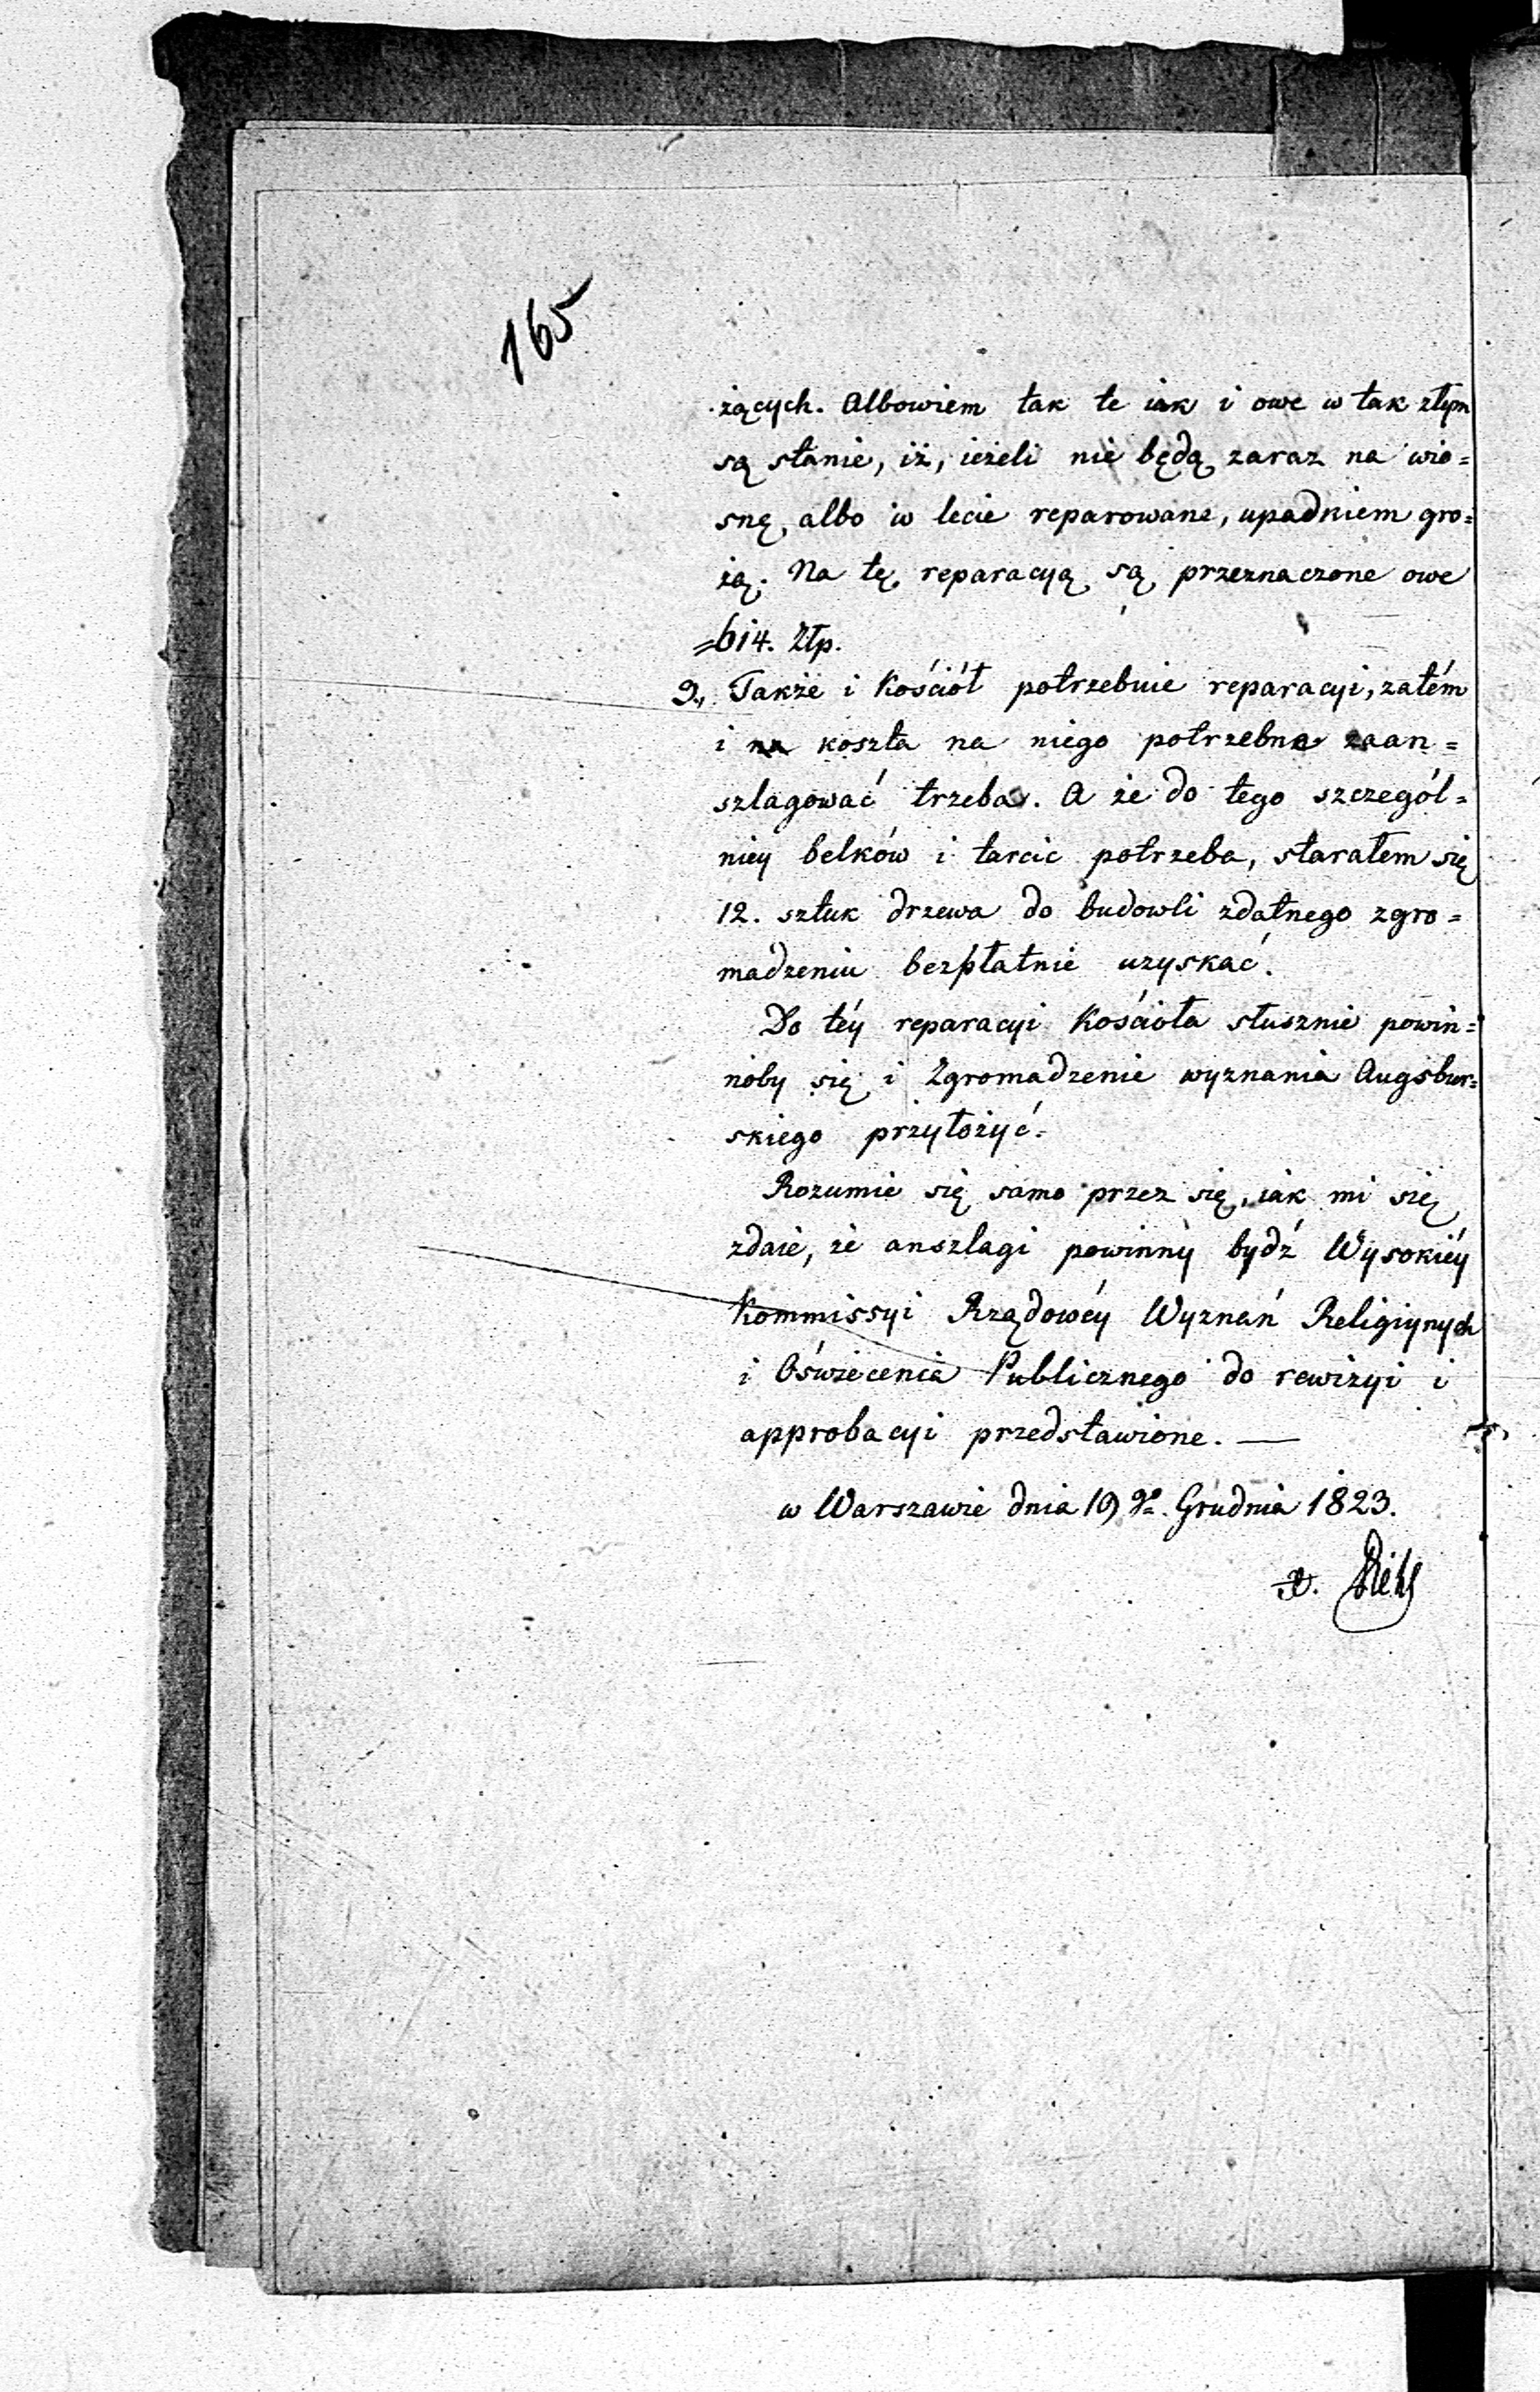 165
żących. Albowiem tak te iak i owe w tak złym
są stanie, iż, ieżeli nie będą zaraz na wio=
snę, albo w lecie reparowane, upadkiem gro=
żą. Na tę reparacyą są przeznaczone owe
=614. Złp.
2., Także i Kościół potrzebuie reparacyi, zatém
i na koszta na niego potrzebne zaan=
szlagować trzeba. A że do tego szczegól=
niey belków i tarcic potrzeba, starałem się
12. sztuk drzewa do budowli zdatnego zgro=
madzeniu bezpłatnie uzyskać.
Do téy reparacyi Kościoła słusznie powin=
noby się i Zgromadzenie wyznania Augsbur=
skiego przyłożyć.
Rozumie się samo przez się, iak mi się
zdaie, że anszlagi powinny bydź Wysokiéy
Kommissyi Rządowéy Wyznań Religiynych
i Oświecenia Publicznego do rewizyi i
approbacyi przedstawione. —
w Warszawie dnia 19 go. Grudnia 1823.